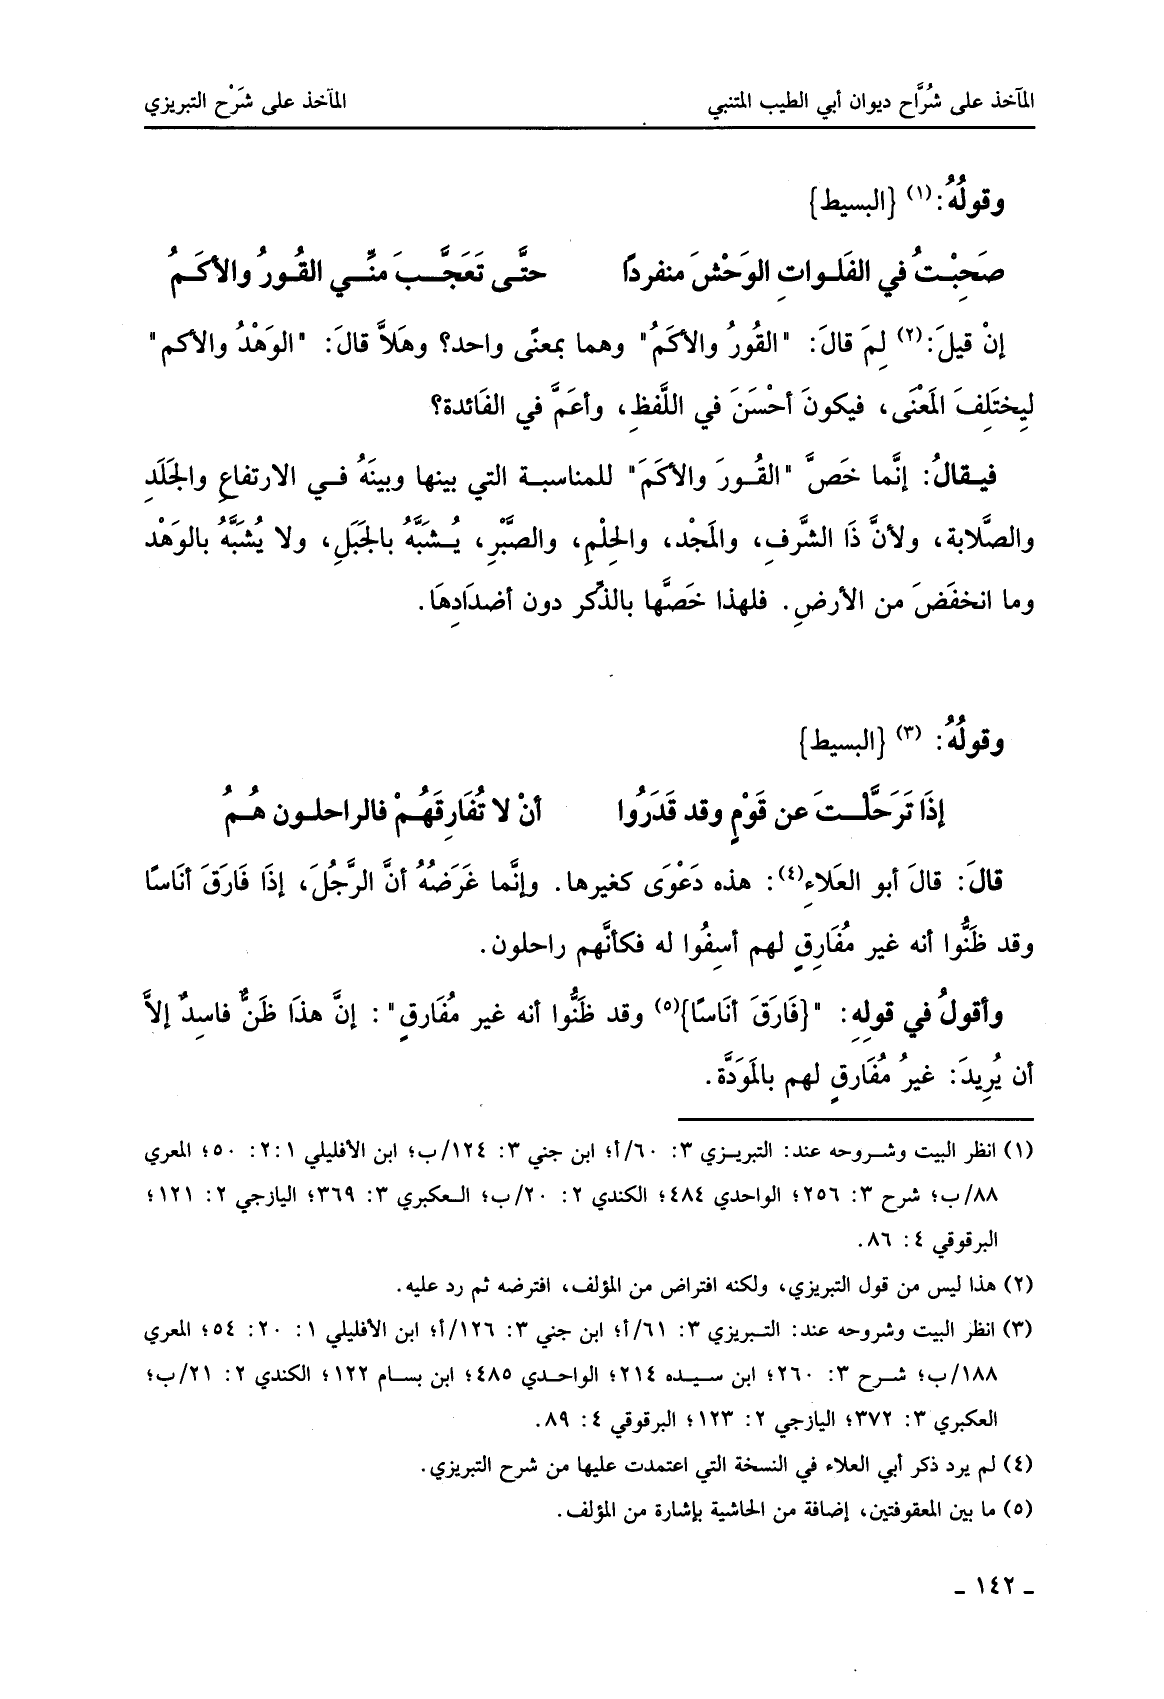 المآخذ على شُرَّاح ديوان أبي الطيب المتنبي المآخذ على شَرْح التبريزي
وقولُهُ: (١) {البسيط}
صَحِبْتُ في الفَلواتِ الوَحْشَ منفردًا حتَّى تَعَجَّبَ منِّي القُورُ والأكَمُ
إنْ قيلَ: (٢) لِمَ قالَ: "القُورُ والأكَمُ" وهما بمعنًى واحد؟ وهَلاَّ قالَ: "الوَهْدُ والأكم"
لِيختَلِفَ المَعْنَى، فيكونَ أحْسَنَ في اللَّفظِ، وأعَمَّ في الفَائدة؟
فيقالُ: إنَّما خَصَّ "القُورَ والأكَمَ" للمناسبة التي بينها وبينَهُ في الارتفاعِ والجَلَدِ
والصَّلابة، ولأنَّ ذَا الشَّرفِ، والمَجْد، والحِلْمِ، والصَّبْرِ، يُشبَّهُ بالجَبَلِ، ولا يُشبَّهُ بالوَهْد
وما انخفَضَ من الأرضِ. فلهذا خَصَّها بالذِّكر دون أضدَادِهَا.
وقولُهُ: (٣) {البسيط}
إذَا تَرَحَّلتَ عن قَوْمٍ وقد قَدَرُوا أنْ لا تُفَارِقَهُمْ فالراحلون هُمُ
قالَ: قالَ أبو العَلاءِ(٤): هذه دَعْوَى كغيرها. وإنَّما غَرَضُهُ أنَّ الرَّجُلَ، إذَا فَارَقَ أنَاسًا
وقد ظَنُّوا أنه غير مُفَارِقٍ لهم أسِفُوا له فكأنَّهم راحلون.
وأقولُ في قولِهِ: "{فَارَقَ أنَاسًا}(٥) وقد ظَنُّوا أنه غير مُفَارقٍ": إنَّ هذَا ظَنٌّ فاسِدٌ إلاَّ
أن يُرِيدَ: غيرُ مُفَارقٍ لهم بالمَوَدَّة.
(١) انظر البيت وشروحه عند: التبريزي ٣: ٦٠/أ؛ ابن جني ٣: ١٢٤/ب؛ ابن الأفليلي ٢:١: ٥٠؛ المعري
٨٨/ب؛ شرح ٣: ٢٥٦؛ الواحدي ٤٨٤؛ الكندي ٢: ٢٠/ب؛ العكبري ٣: ٣٦٩؛ اليازجي ٢: ١٢١؛
البرقوقي ٤: ٨٦.
(٢) هذا ليس من قول التبريزي، ولكنه افتراض من المؤلف، افترضه ثم رد عليه.
(٣) انظر البيت وشروحه عند: التبريزي ٣: ٦١/أ؛ ابن جني ٣: ١٢٦/أ؛ ابن الأفليلي ١: ٢٠: ٥٤؛ المعري
١٨٨/ب؛ شرح ٣: ٢٦٠؛ ابن سيده ٢١٤؛ الواحدي ٤٨٥؛ ابن بسام ١٢٢؛ الكندي ٢: ٢١/ب؛
العكبري ٣: ٣٧٢؛ اليازجي ٢: ١٢٣؛ البرقوقي ٤: ٨٩.
(٤) لم يرد ذكر أبي العلاء في النسخة التي اعتمدت عليها من شرح التبريزي.
(٥) ما بين المعقوفتين، إضافة من الحاشية بإشارة من المؤلف.
ـ ١٤٢ ـ